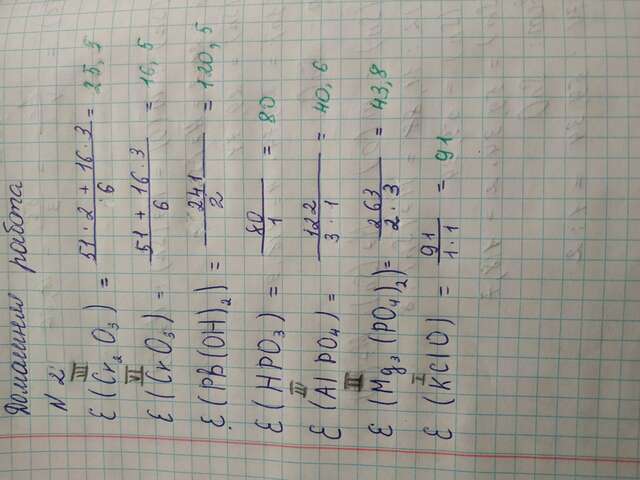 Домашнем работа
N 2
III
Ɛ (Cr₂O₃) = 51·2 + 16·3 / 6 = 25,5
VI
Ɛ (CrO₃) = 51 + 16·3 / 6 = 16,5
Ɛ (PB(OH)₂) = 241 / 2 = 120,5
Ɛ (HPO₃) = 80 / 1 = 80
III
Ɛ (AlPO₄) = 122 / 3·1 = 40,6
III
Ɛ (Mg₃(PO₄)₂) = 263 / 2·3 = 43,8
I
Ɛ (KClO) = 91 / 1·1 = 91